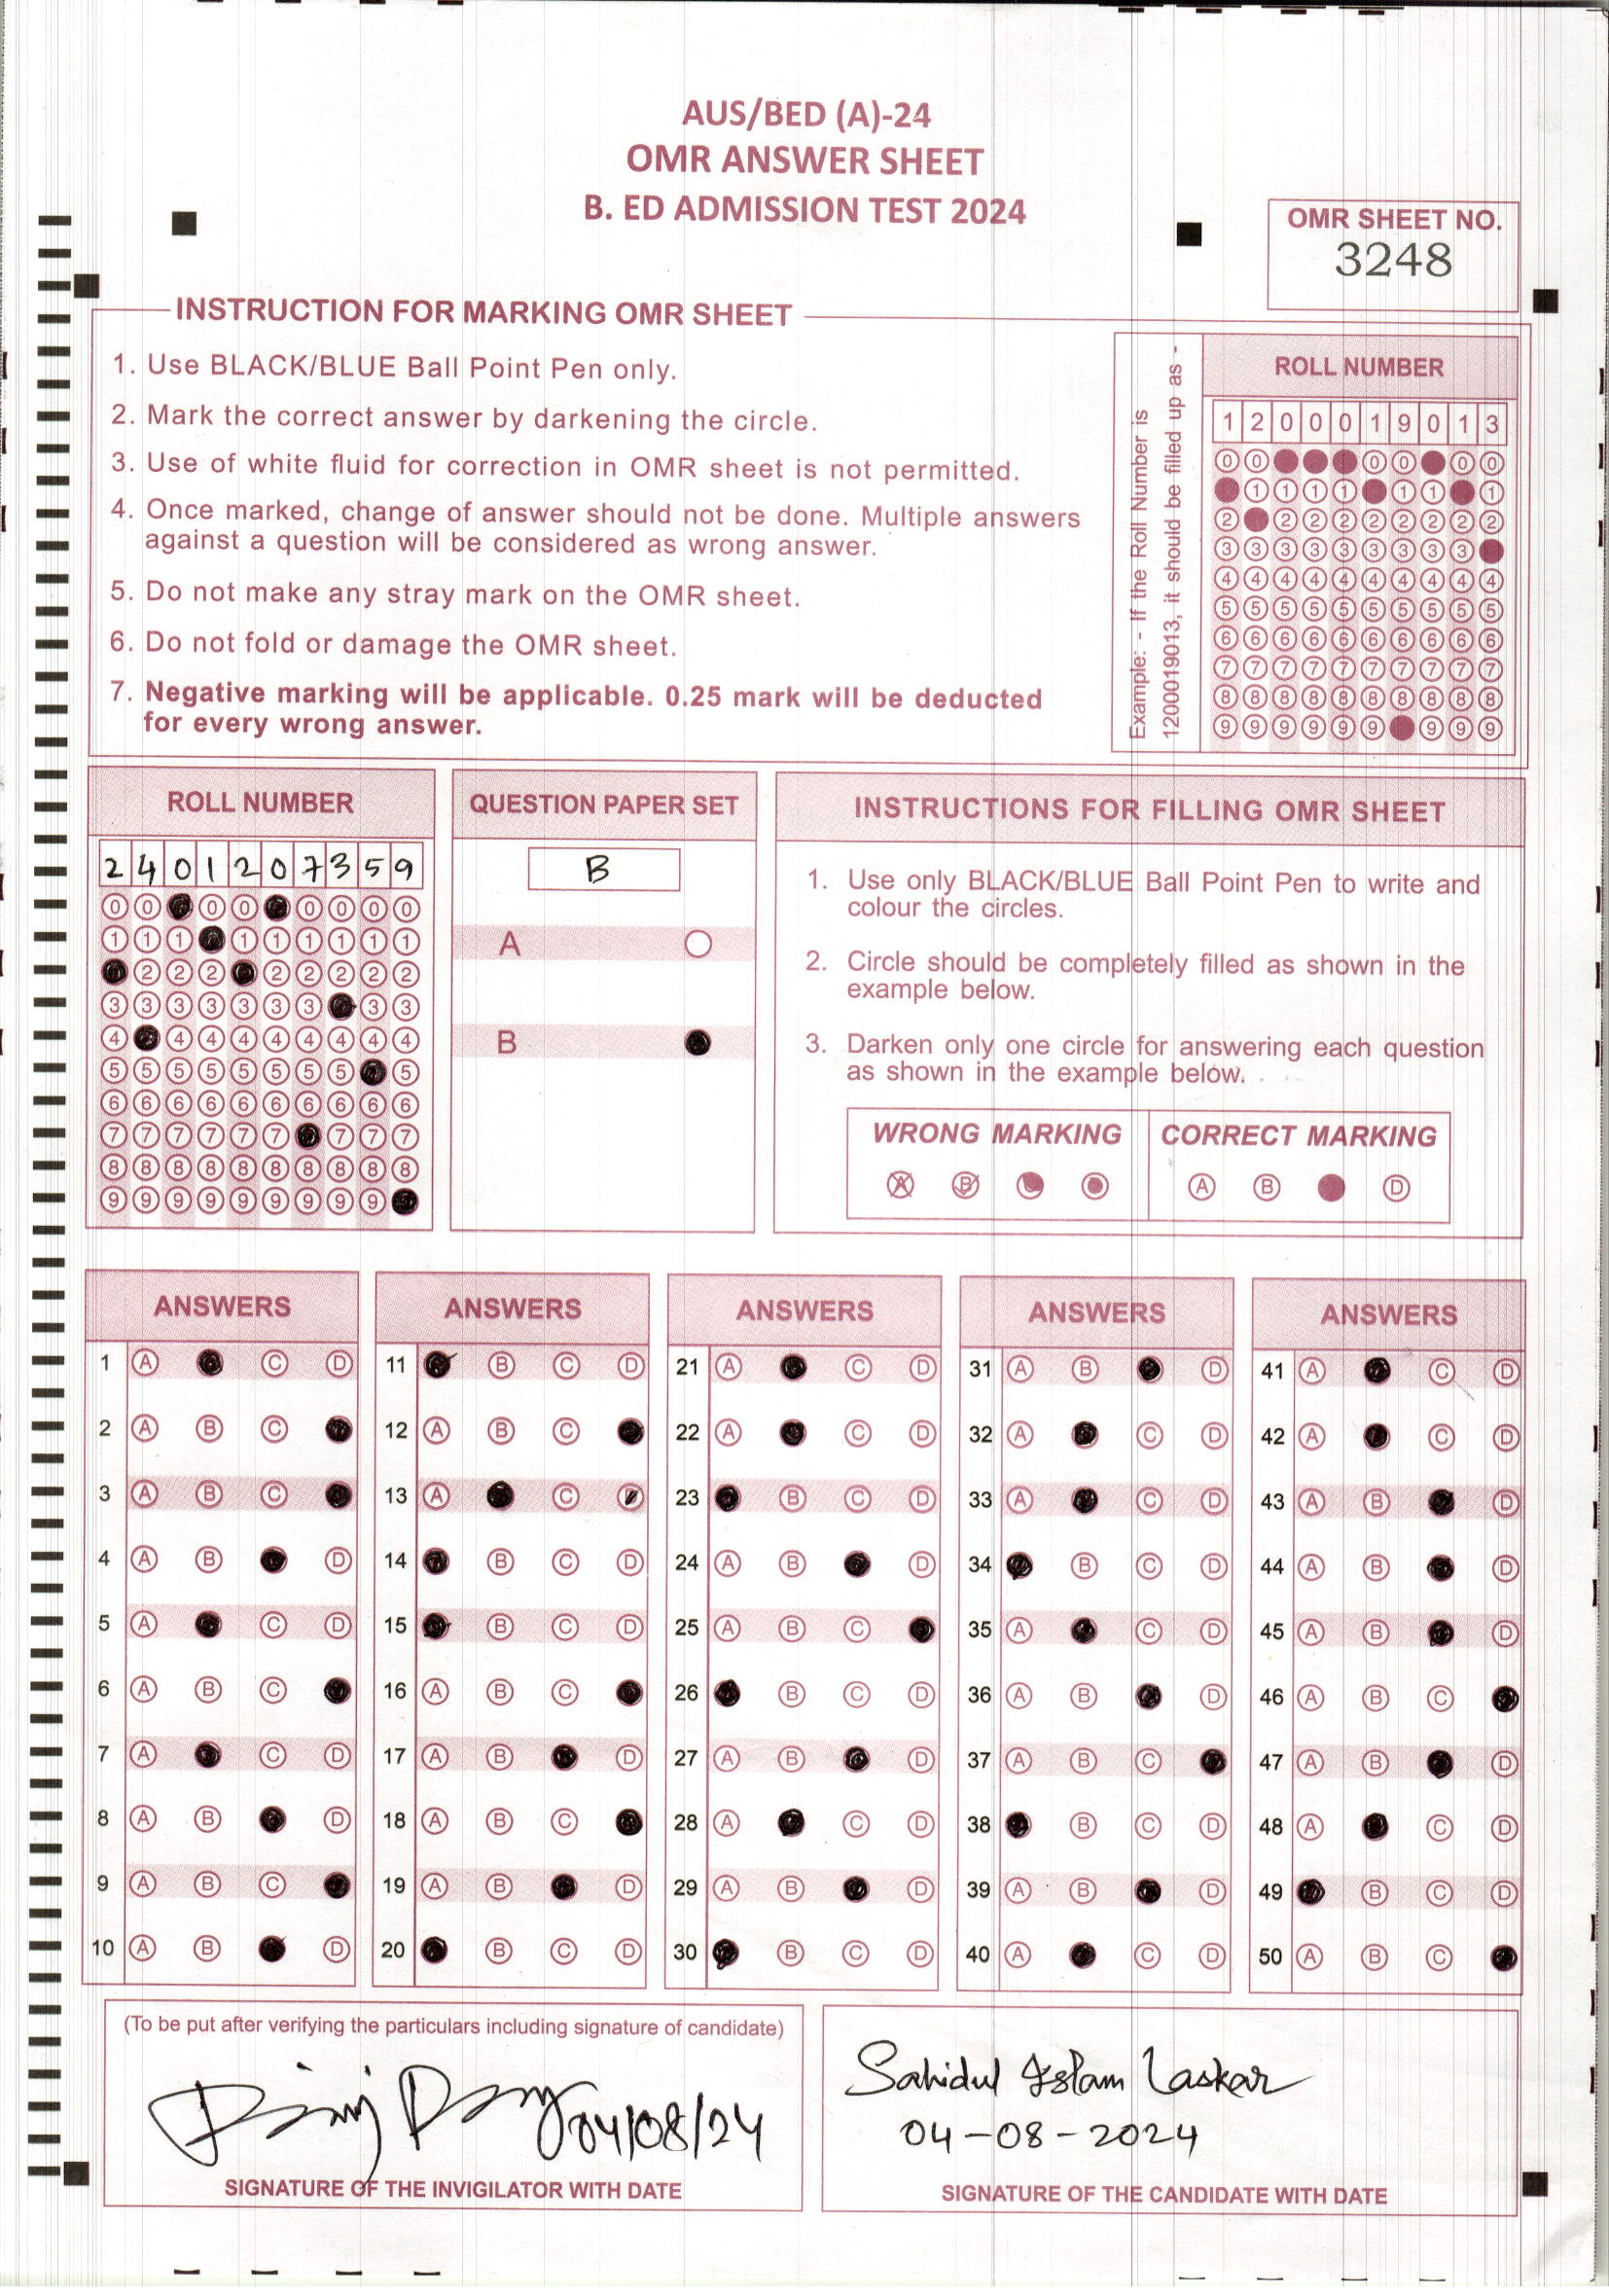 AUS/BED (A)-24
OMR ANSWER SHEET
B. ED ADMISSION TEST 2024
OMR SHEET NO.
3248
INSTRUCTION FOR MARKING OMR SHEET
1. Use BLACK/BLUE Ball Point Pen only.
2. Mark the correct answer by darkening the circle.
3. Use of white fluid for correction in OMR sheet is not permitted.
4. Once marked, change of answer should not be done. Multiple answers
against a question will be considered as wrong answer.
5. Do not make any stray mark on the OMR sheet.
6. Do not fold or damage the OMR sheet.
7. Negative marking will be applicable. 0.25 mark will be deducted
for every wrong answer.
Example: - If the Roll Number is
1200019013, it should be filled up as -
ROLL NUMBER
1 2 0 0 0 1 9 0 1 3
0 0 0 0 0 0
1 1 1 1 1 1 1
2 2 2 2 2 2 2 2 2
3 3 3 3 3 3 3 3 3
4 4 4 4 4 4 4 4 4 4
5 5 5 5 5 5 5 5 5 5
6 6 6 6 6 6 6 6 6 6
7 7 7 7 7 7 7 7 7 7
8 8 8 8 8 8 8 8 8 8
9 9 9 9 9 9 9 9 9
ROLL NUMBER
2 4 0 1 2 0 7 3 5 9
0 0 0 0 0 0 0 0
1 1 1 1 1 1 1 1 1
2 2 2 2 2 2 2 2
3 3 3 3 3 3 3 3 3
4 4 4 4 4 4 4 4 4
5 5 5 5 5 5 5 5 5
6 6 6 6 6 6 6 6 6 6
7 7 7 7 7 7 7 7 7
8 8 8 8 8 8 8 8 8 8
9 9 9 9 9 9 9 9 9
QUESTION PAPER SET
B
A
B
INSTRUCTIONS FOR FILLING OMR SHEET
1. Use only BLACK/BLUE Ball Point Pen to write and
colour the circles.
2. Circle should be completely filled as shown in the
example below.
3. Darken only one circle for answering each question
as shown in the example below.
WRONG MARKING
A B
CORRECT MARKING
A B D
ANSWERS
1 A C D
2 A B C
3 A B C
4 A B D
5 A C D
6 A B C
7 A C D
8 A B D
9 A B C
10 A B D
ANSWERS
11 B C D
12 A B C
13 A C D
14 B C D
15 B C D
16 A B C
17 A B D
18 A B C
19 A B D
20 B C D
ANSWERS
21 A C D
22 A C D
23 B C D
24 A B D
25 A B C
26 B C D
27 A B D
28 A C D
29 A B D
30 B C D
ANSWERS
31 A B D
32 A C D
33 A C D
34 B C D
35 A C D
36 A B D
37 A B C
38 B C D
39 A B D
40 A C D
ANSWERS
41 A C D
42 A C D
43 A B D
44 A B D
45 A B D
46 A B C
47 A B D
48 A C D
49 B C D
50 A B C
(To be put after verifying the particulars including signature of candidate)
04/08/24
SIGNATURE OF THE INVIGILATOR WITH DATE
Sahidul Islam Laskar
04-08-2024
SIGNATURE OF THE CANDIDATE WITH DATE